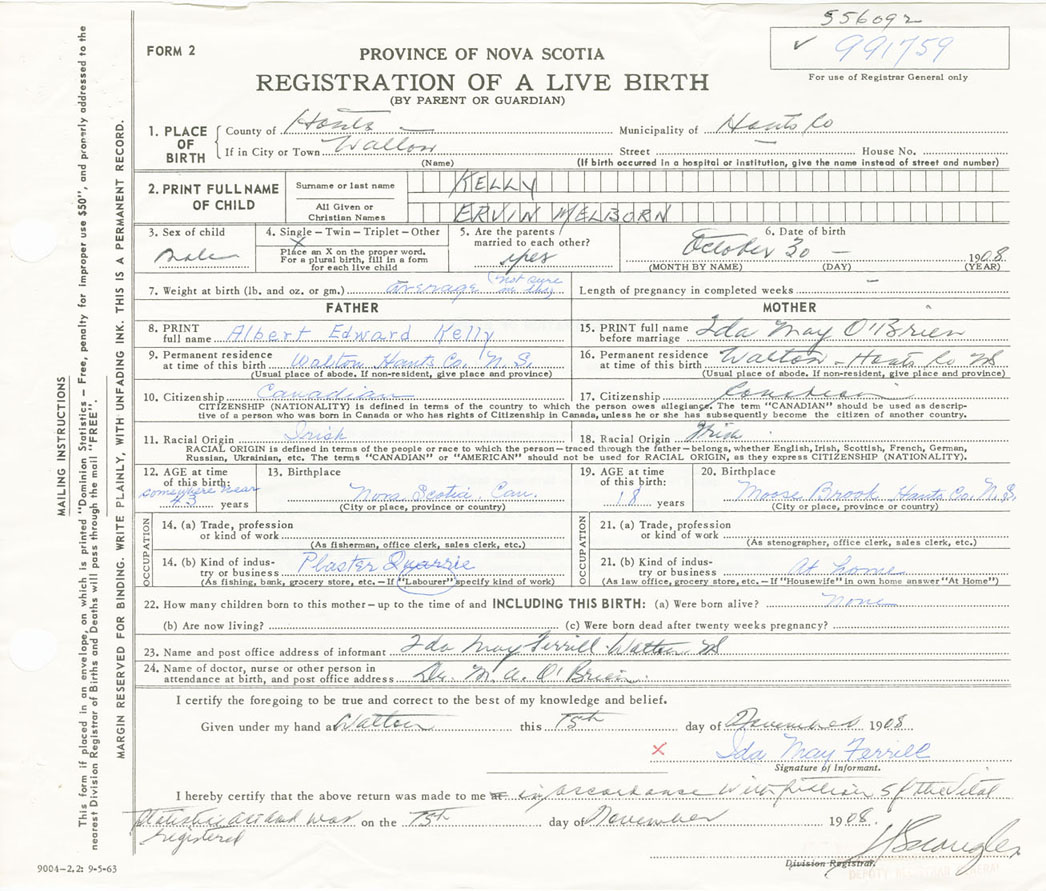 556092
FORM 2
PROVINCE OF NOVA SCOTIA
✓ 991759
REGISTRATION OF A LIVE BIRTH
For use of Registrar General only
(BY PARENT OR GUARDIAN)
1. PLACE OF BIRTH
County of Hants Municipality of Hants Co
If in City or Town Walton Street — House No.
(Name) (If birth occurred in a hospital or institution, give the name instead of street and number)
2. PRINT FULL NAME OF CHILD
Surname or last name KELLY
All Given or Christian Names ERVIN MELBORN
3. Sex of child Male
4. Single – Twin – Triplet – Other
X
Place an X on the proper word.
For a plural birth, fill in a form
for each live child
5. Are the parents
married to each other?
yes
6. Date of birth
October 30 — 1908
(MONTH BY NAME) (DAY) (YEAR)
7. Weight at birth (lb. and oz. or gm.) average (not sure on this) Length of pregnancy in completed weeks —
FATHER
8. PRINT full name Albert Edward Kelly
9. Permanent residence at time of this birth Walton Hants Co. N.S.
(Usual place of abode. If non-resident, give place and province)
10. Citizenship Canadian
MOTHER
15. PRINT full name before marriage Ida May O'Brien
16. Permanent residence at time of this birth Walton – Hants Co NS
(Usual place of abode. If non-resident, give place and province)
17. Citizenship Canadian
CITIZENSHIP (NATIONALITY) is defined in terms of the country to which the person owes allegiance. The term "CANADIAN" should be used as descrip-
tive of a person who was born in Canada or who has rights of Citizenship in Canada, unless he or she has subsequently become the citizen of another country.
11. Racial Origin Irish 18. Racial Origin Irish
RACIAL ORIGIN is defined in terms of the people or race to which the person – traced through the father – belongs, whether English, Irish, Scottish, French, German,
Russian, Ukrainian, etc. The terms "CANADIAN" or "AMERICAN" should not be used for RACIAL ORIGIN, as they express CITIZENSHIP (NATIONALITY).
12. AGE at time of this birth: somewhere near 43 years
13. Birthplace
Nova Scotia, Can.
(City or place, province or country)
19. AGE at time of this birth: 18 years
20. Birthplace
Moose Brook Hants Co. N.S.
(City or place, province or country)
OCCUPATION
14. (a) Trade, profession or kind of work
(As fisherman, office clerk, sales clerk, etc.)
14. (b) Kind of indus-try or business Plaster Quarrie
(As fishing, bank, grocery store, etc. – If "Labourer" specify kind of work)
OCCUPATION
21. (a) Trade, profession or kind of work
(As stenographer, office clerk, sales clerk, etc.)
21. (b) Kind of indus-try or business At home
(As law office, grocery store, etc. – If "Housewife" in own home answer "At Home")
22. How many children born to this mother – up to the time of and INCLUDING THIS BIRTH: (a) Were born alive? none
(b) Are now living? (c) Were born dead after twenty weeks pregnancy?
23. Name and post office address of informant Ida May Ferrill Walton NS
24. Name of doctor, nurse or other person in
attendance at birth, and post office address Dr. M. A. O'Brien.
I certify the foregoing to be true and correct to the best of my knowledge and belief.
Given under my hand at Walton this 15th day of November 1908
X Ida May Ferrill
Signature of Informant.
I hereby certify that the above return was made to me at in accordance with section 5 of the Vital
Statistics Act and was on the 15th day of November 1908.
registered
Division Registrar.
DEPUTY REGISTRAR GENERAL
9004–2.2: 9-5-63
MAILING INSTRUCTIONS
This form if placed in an envelope, on which is printed "Dominion Statistics – Free, penalty for improper use $50", and properly addressed to the
nearest Division Registrar of Births and Deaths will pass through the mail "FREE".
MARGIN RESERVED FOR BINDING. WRITE PLAINLY, WITH UNFADING INK. THIS IS A PERMANENT RECORD.